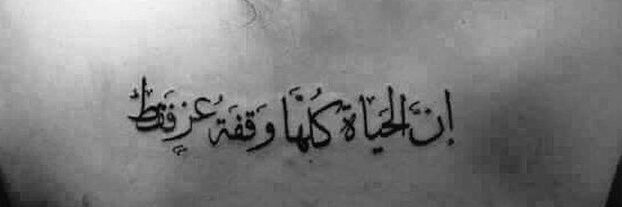 إنَّ الحَيَاة كُلهَّا وَقفَةُ عُز فَقَطْ